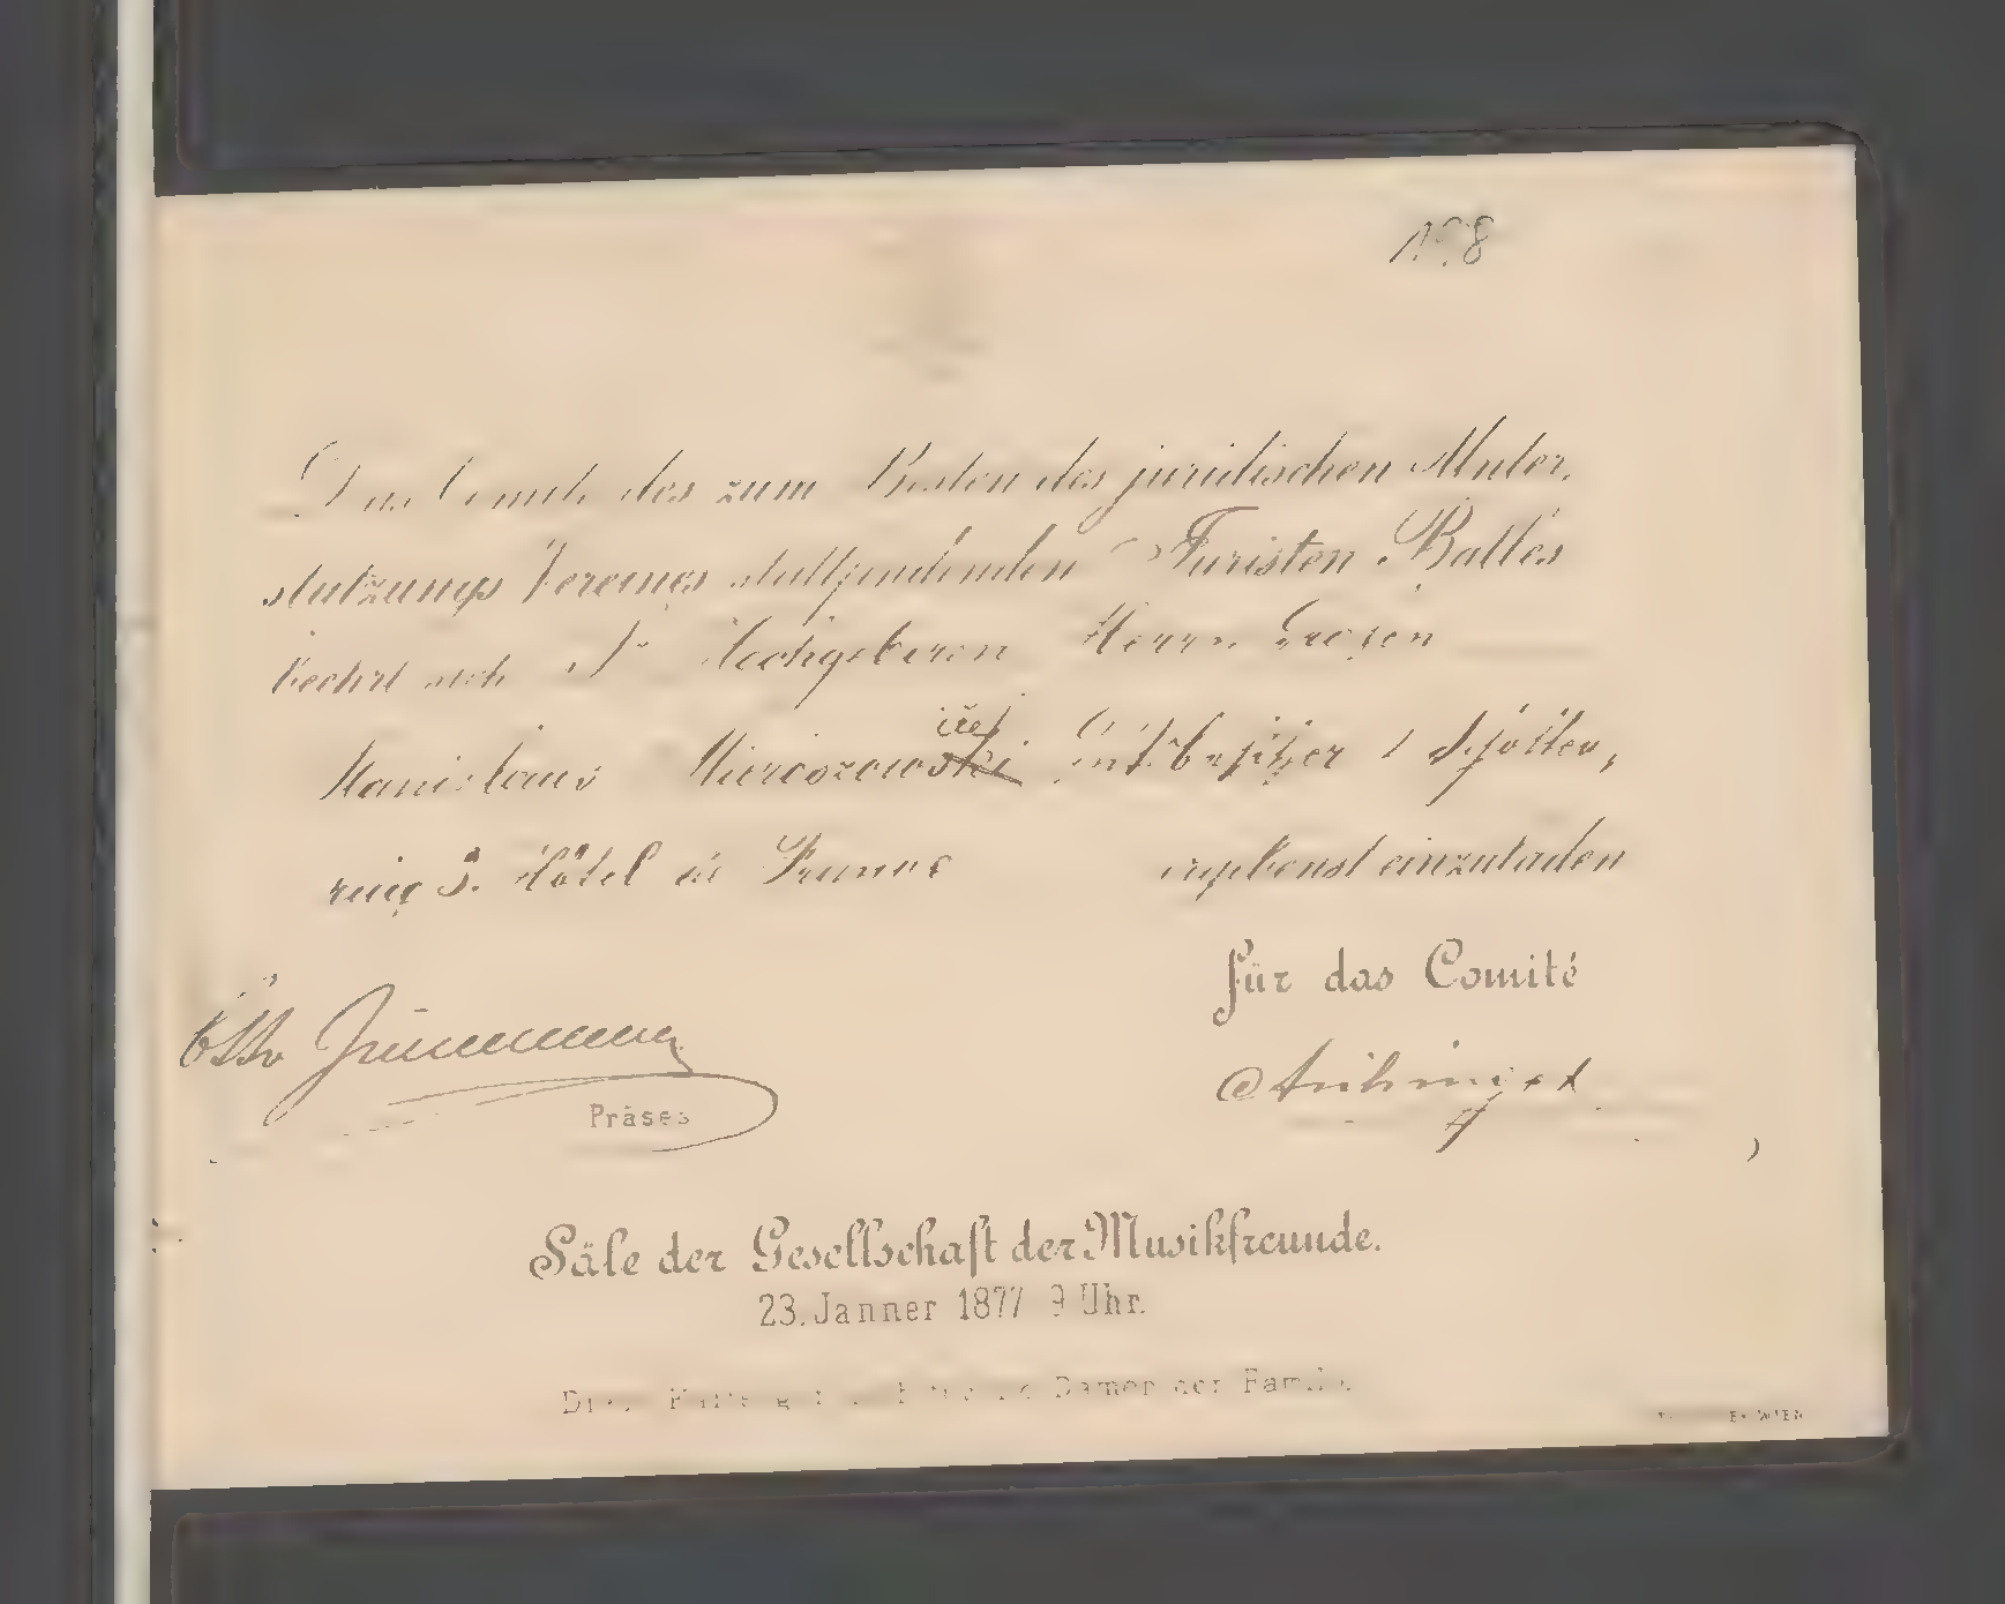 Das Comité des zum Besten des juridischen Unter-
stützungs Vereines stattfindenden Juristen Balles
beehrt sich Sr Hochgeboren Herrn Grafen
Stanislaus Mieroszowski Gutsbesitzer I Schotten,
ring 3. Hôtel de France ergebenst einzuladen
für das Comité
Otto
Präses
Säle der Gesellschaft der Musikfreunde.
23. Jänner 1877 9 Uhr.
Diese Karte Damen der Familie
WIEN